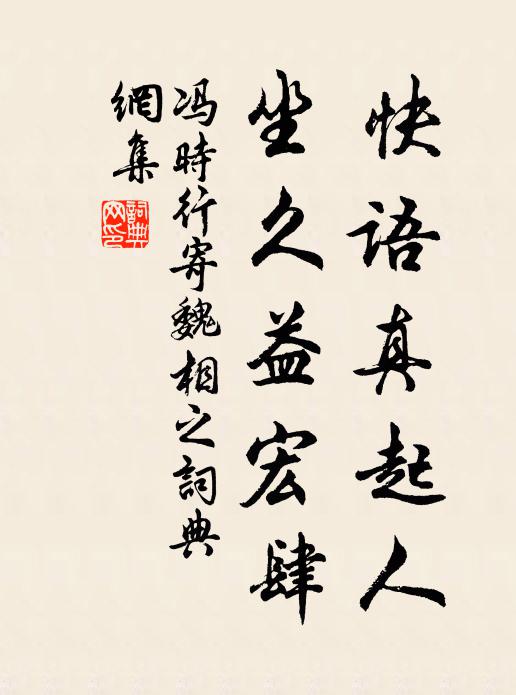 快语真起人
坐久益宏肆
冯時行寄魏相之詞典
網集
詞典
网印